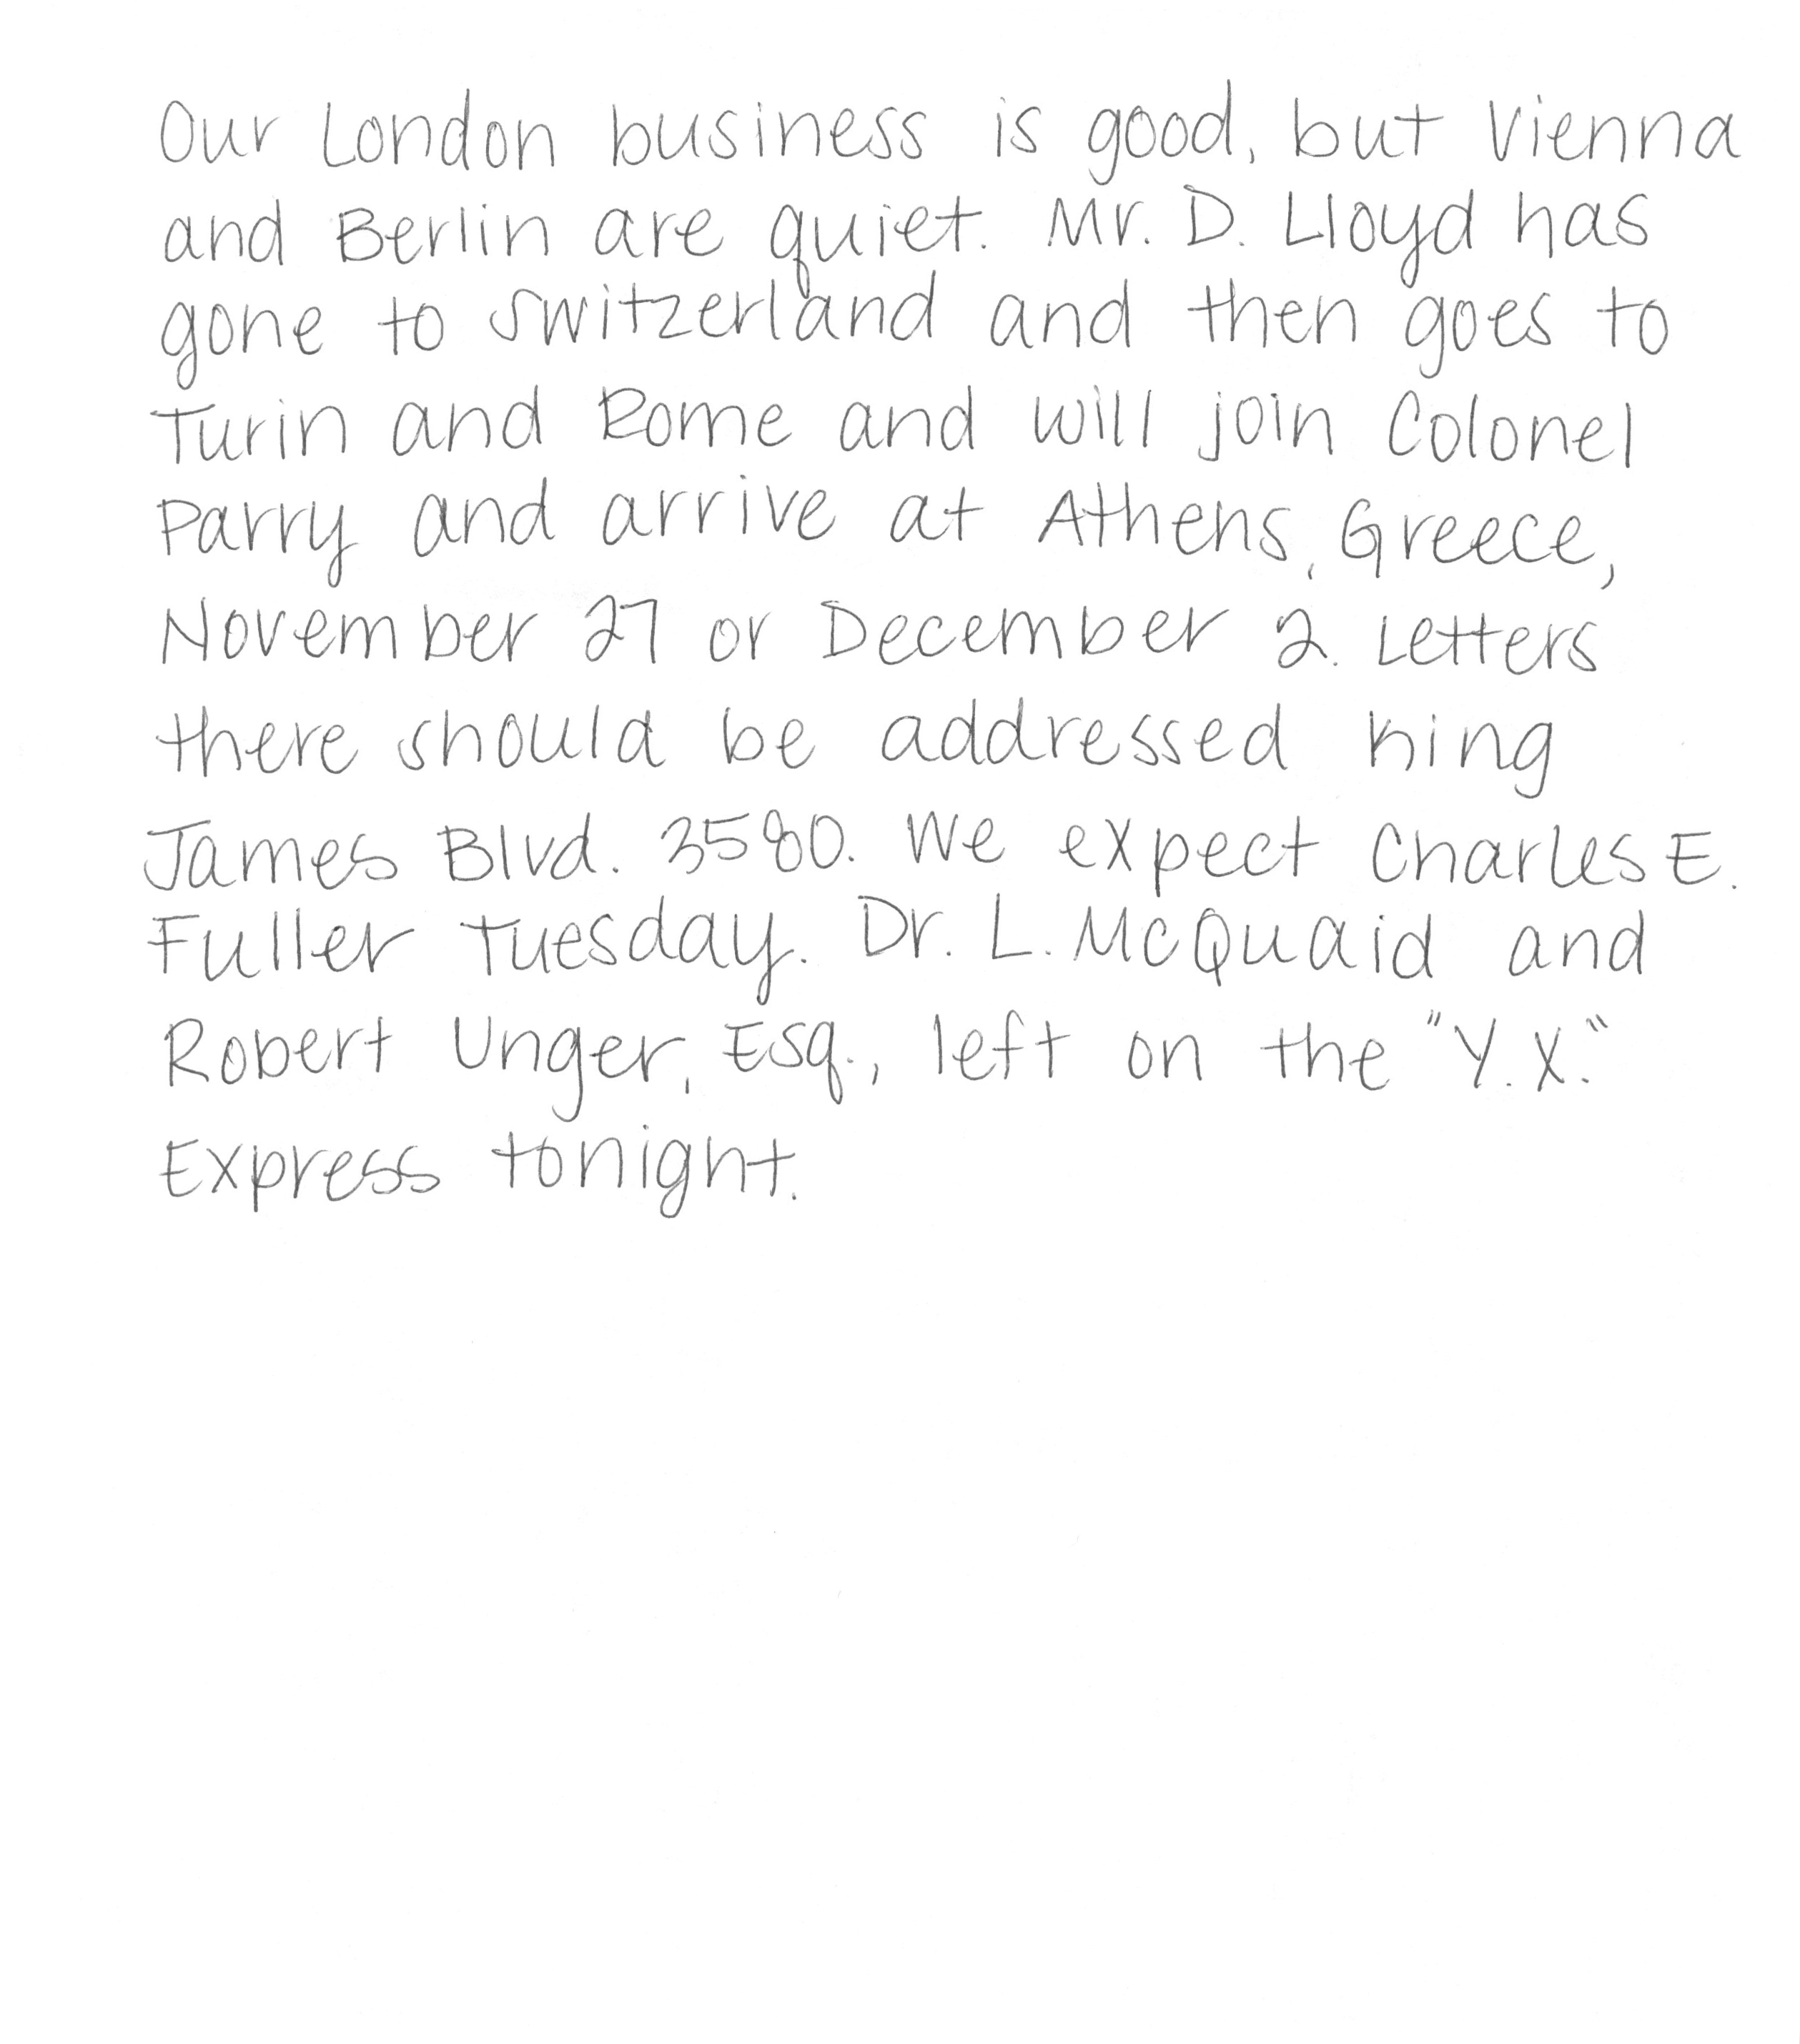 Our London business is good, but Vienna
and Berlin are quiet. Mr. D. Lloyd has
gone to Switzerland and then goes to
Turin and Rome and will join Colonel
Parry and arrive at Athens, Greece,
November 27 or December 2. Letters
there should be addressed King
James Blvd. 3580. We expect Charles E.
Fuller Tuesday. Dr. L. McQuaid and
Robert Unger, Esq., left on the "Y.X."
Express tonight.